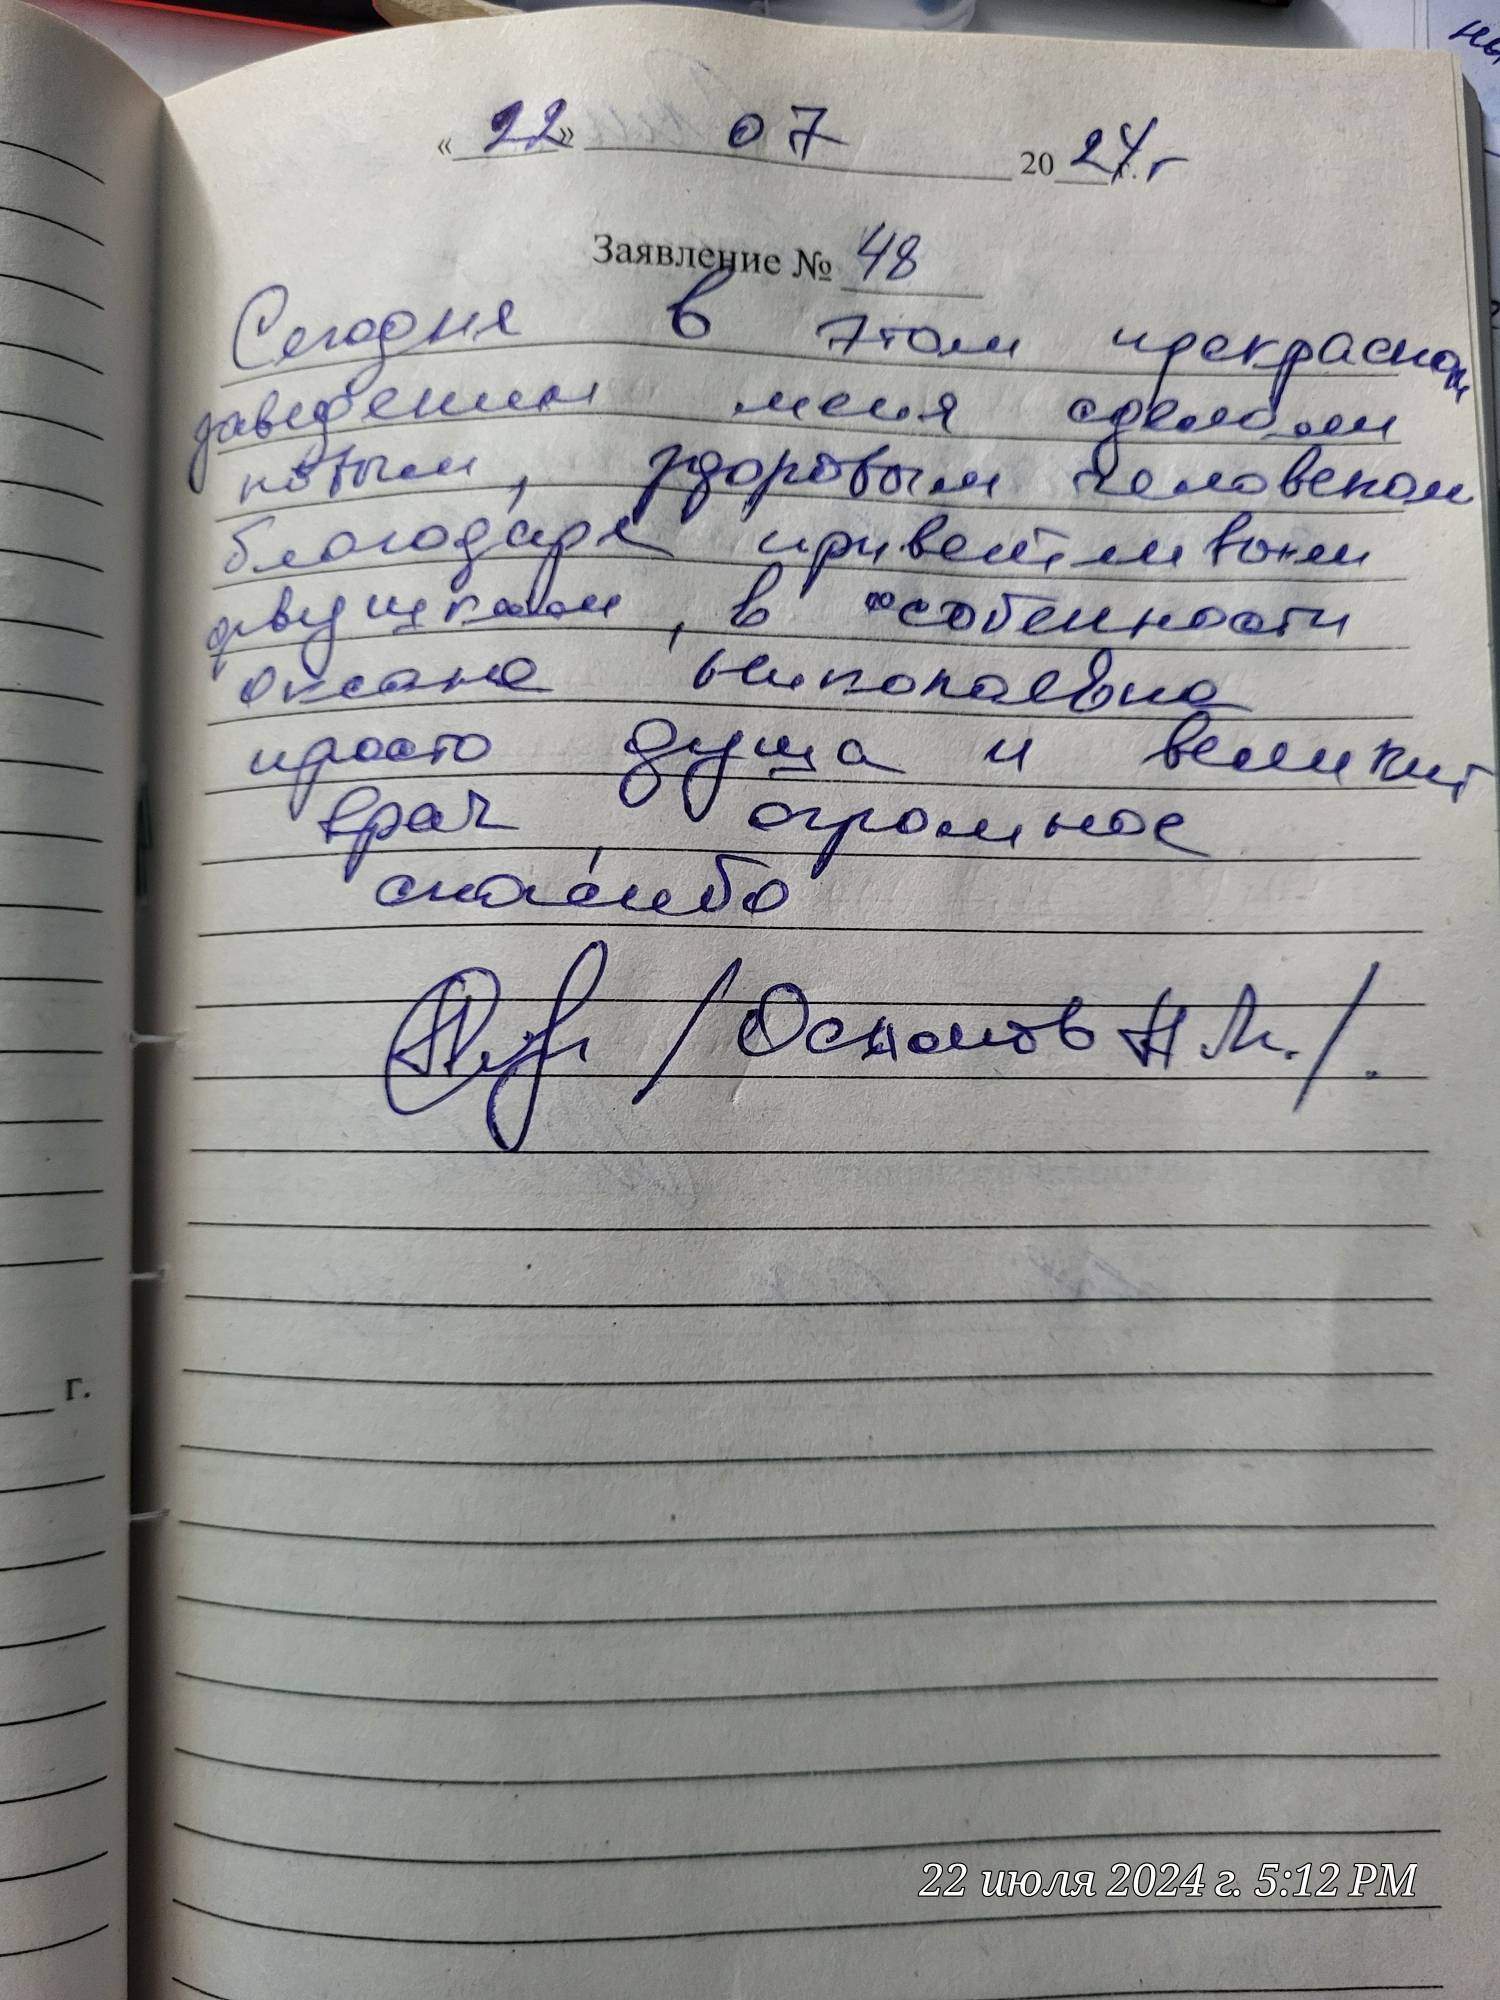 « 22 » 07 20 24 г. г
Заявление № 48
Сегодня в этом прекрасном
заведении меня сделали
новым, здоровым человеком
благодаря приветливым
девушкам, в особенности
Оксана Николаевна
просто душа и великий
врач, огромное
спасибо
/ Оспанов Н М. /.
г.
22 июля 2024 г. 5:12 PM